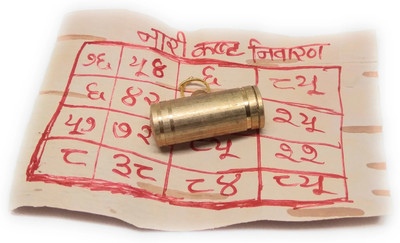 नारी कष्ट निवारन
१६ ५४ ६ ८५
६ ४२ २५
५१ ७२ २२
८ ३८ ८४ ८५